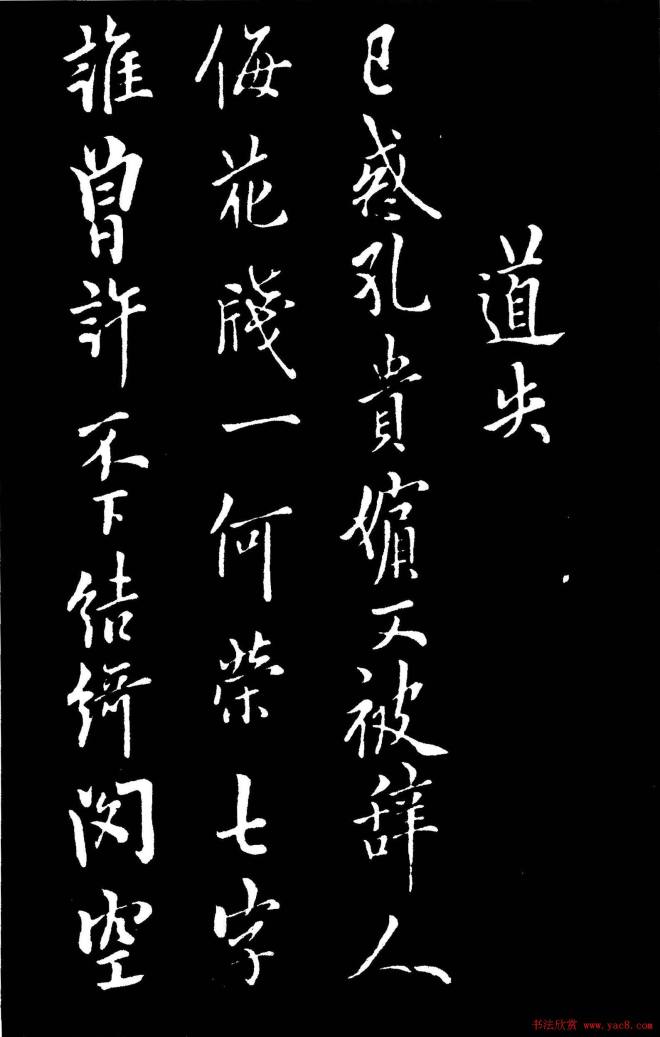 道失
已惑孔貴嬪又被辞人
侮花牋一何榮七字
誰曾許不下結綺閣空
书法欣赏 www.yac8.com